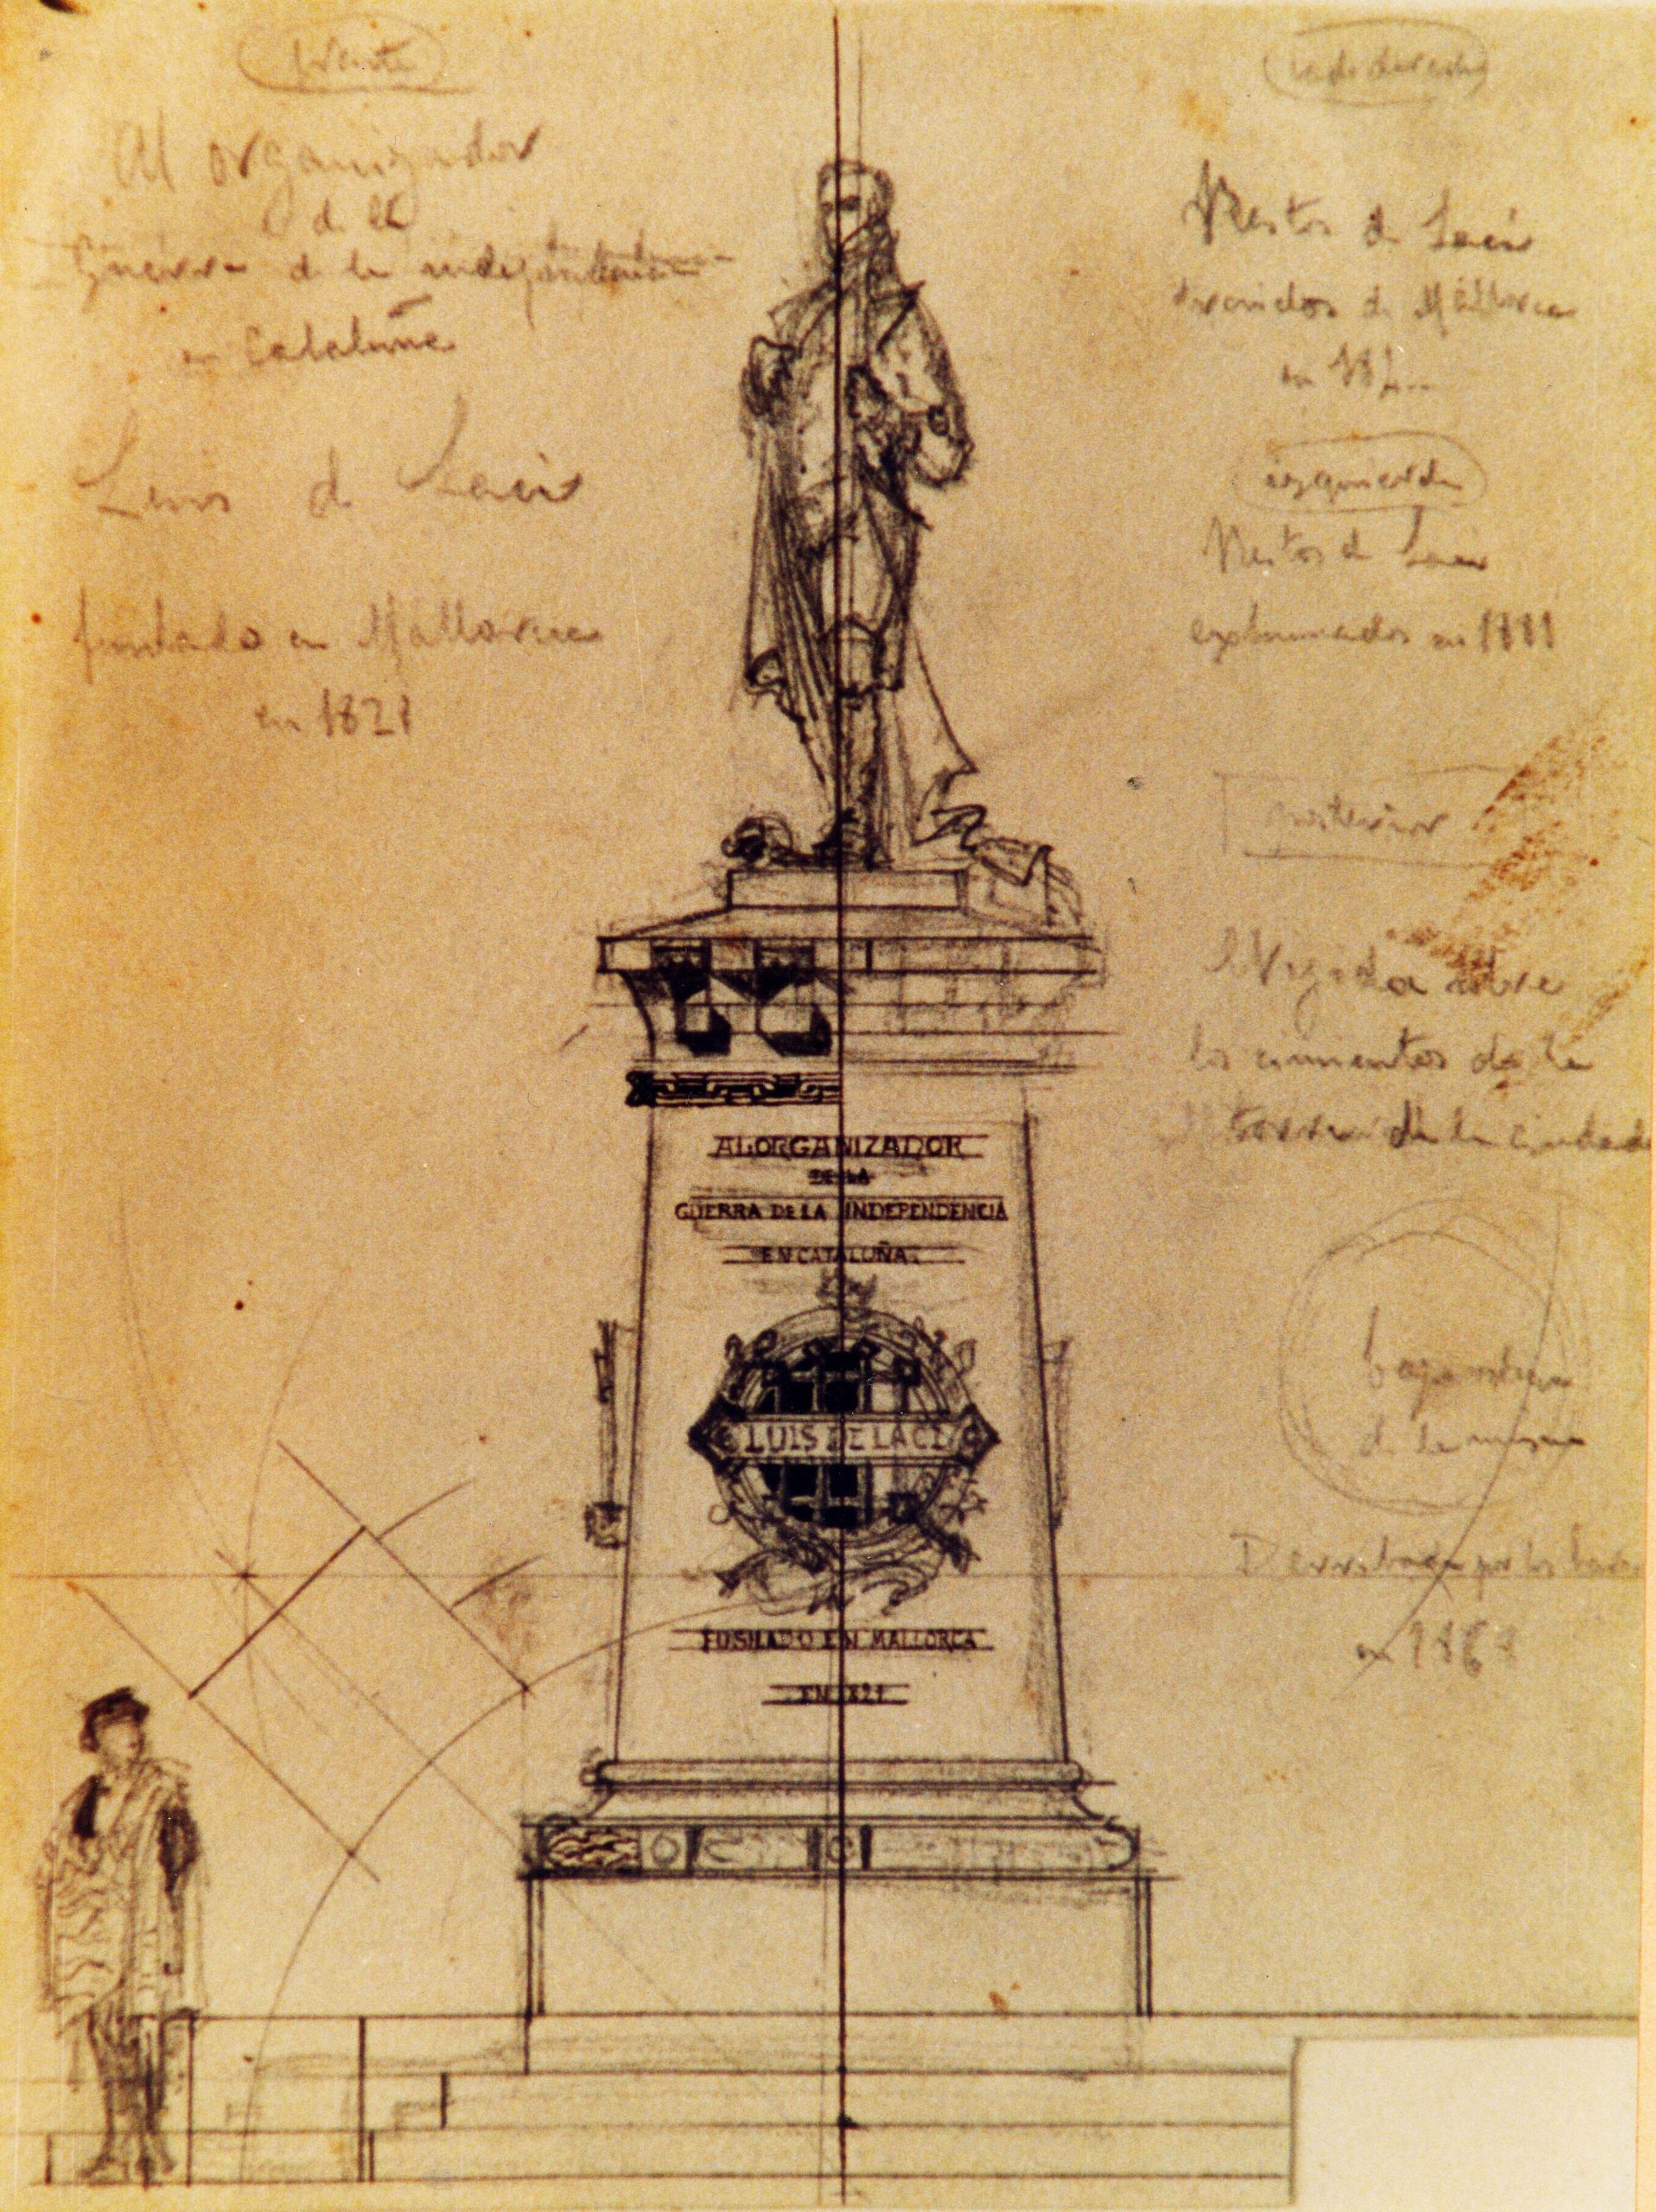 frente
Al organizador
de la
Guerra de la independencia
en Cataluña
Luis de Laci
fusilado en Mallorca
en 1821
lado derecho
Restos de Laci
venidos de Mallorca
en 182..
izquierda
Restos de Laci
exhumados en 1881
posterior
sobre
los cimientos de la
de la ciudadela
bajo
de la misma
Derribada por los
en 1868
AL ORGANIZADOR
DE LA
GUERRA DE LA INDEPENDENCIA
EN CATALUÑA.
LUIS DE LACI
FUSILADO EN MALLORCA
EN 1821